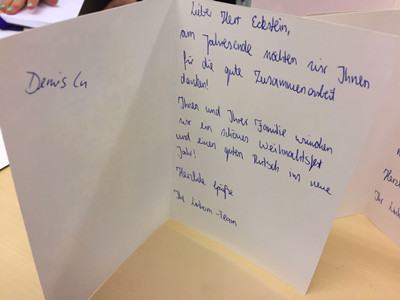 Denis
Lieber Herr Eckstein,
am Jahresende möchten wir Ihnen
für die gute Zusammenarbeit
danken!
Ihnen und Ihrer Familie wünschen
wir ein schönes Weihnachtsfest
und einen guten Rutsch ins neue
Jahr!
Herzliche Grüße
Ihr -Team